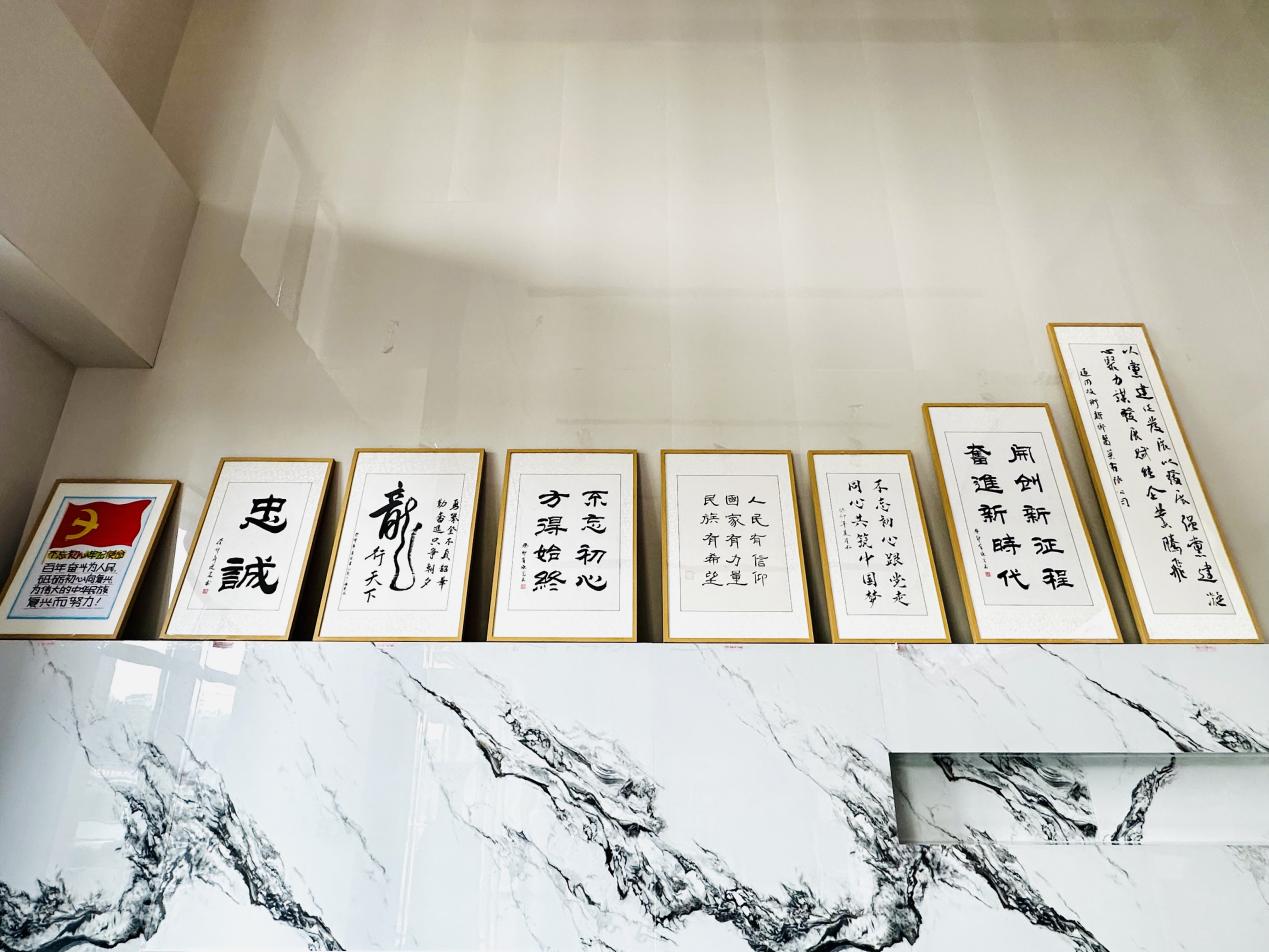 不忘初心牢记使命
百年奋斗为人民,
砥砺初心向复兴
为伟大的中华民族
复兴而努力!
忠
誠
龍
行
天
下
勇策金
勤奋進只争朝夕
不忘初心
方得始終
人民有信仰
國家有力量
民族有希望
不忘初心跟党走
同心共筑中国梦
開創新征程
奮進新時代
以黨建促發展以發展强黨建凝
心聚力謀發展赋能企業騰飛
有限公司